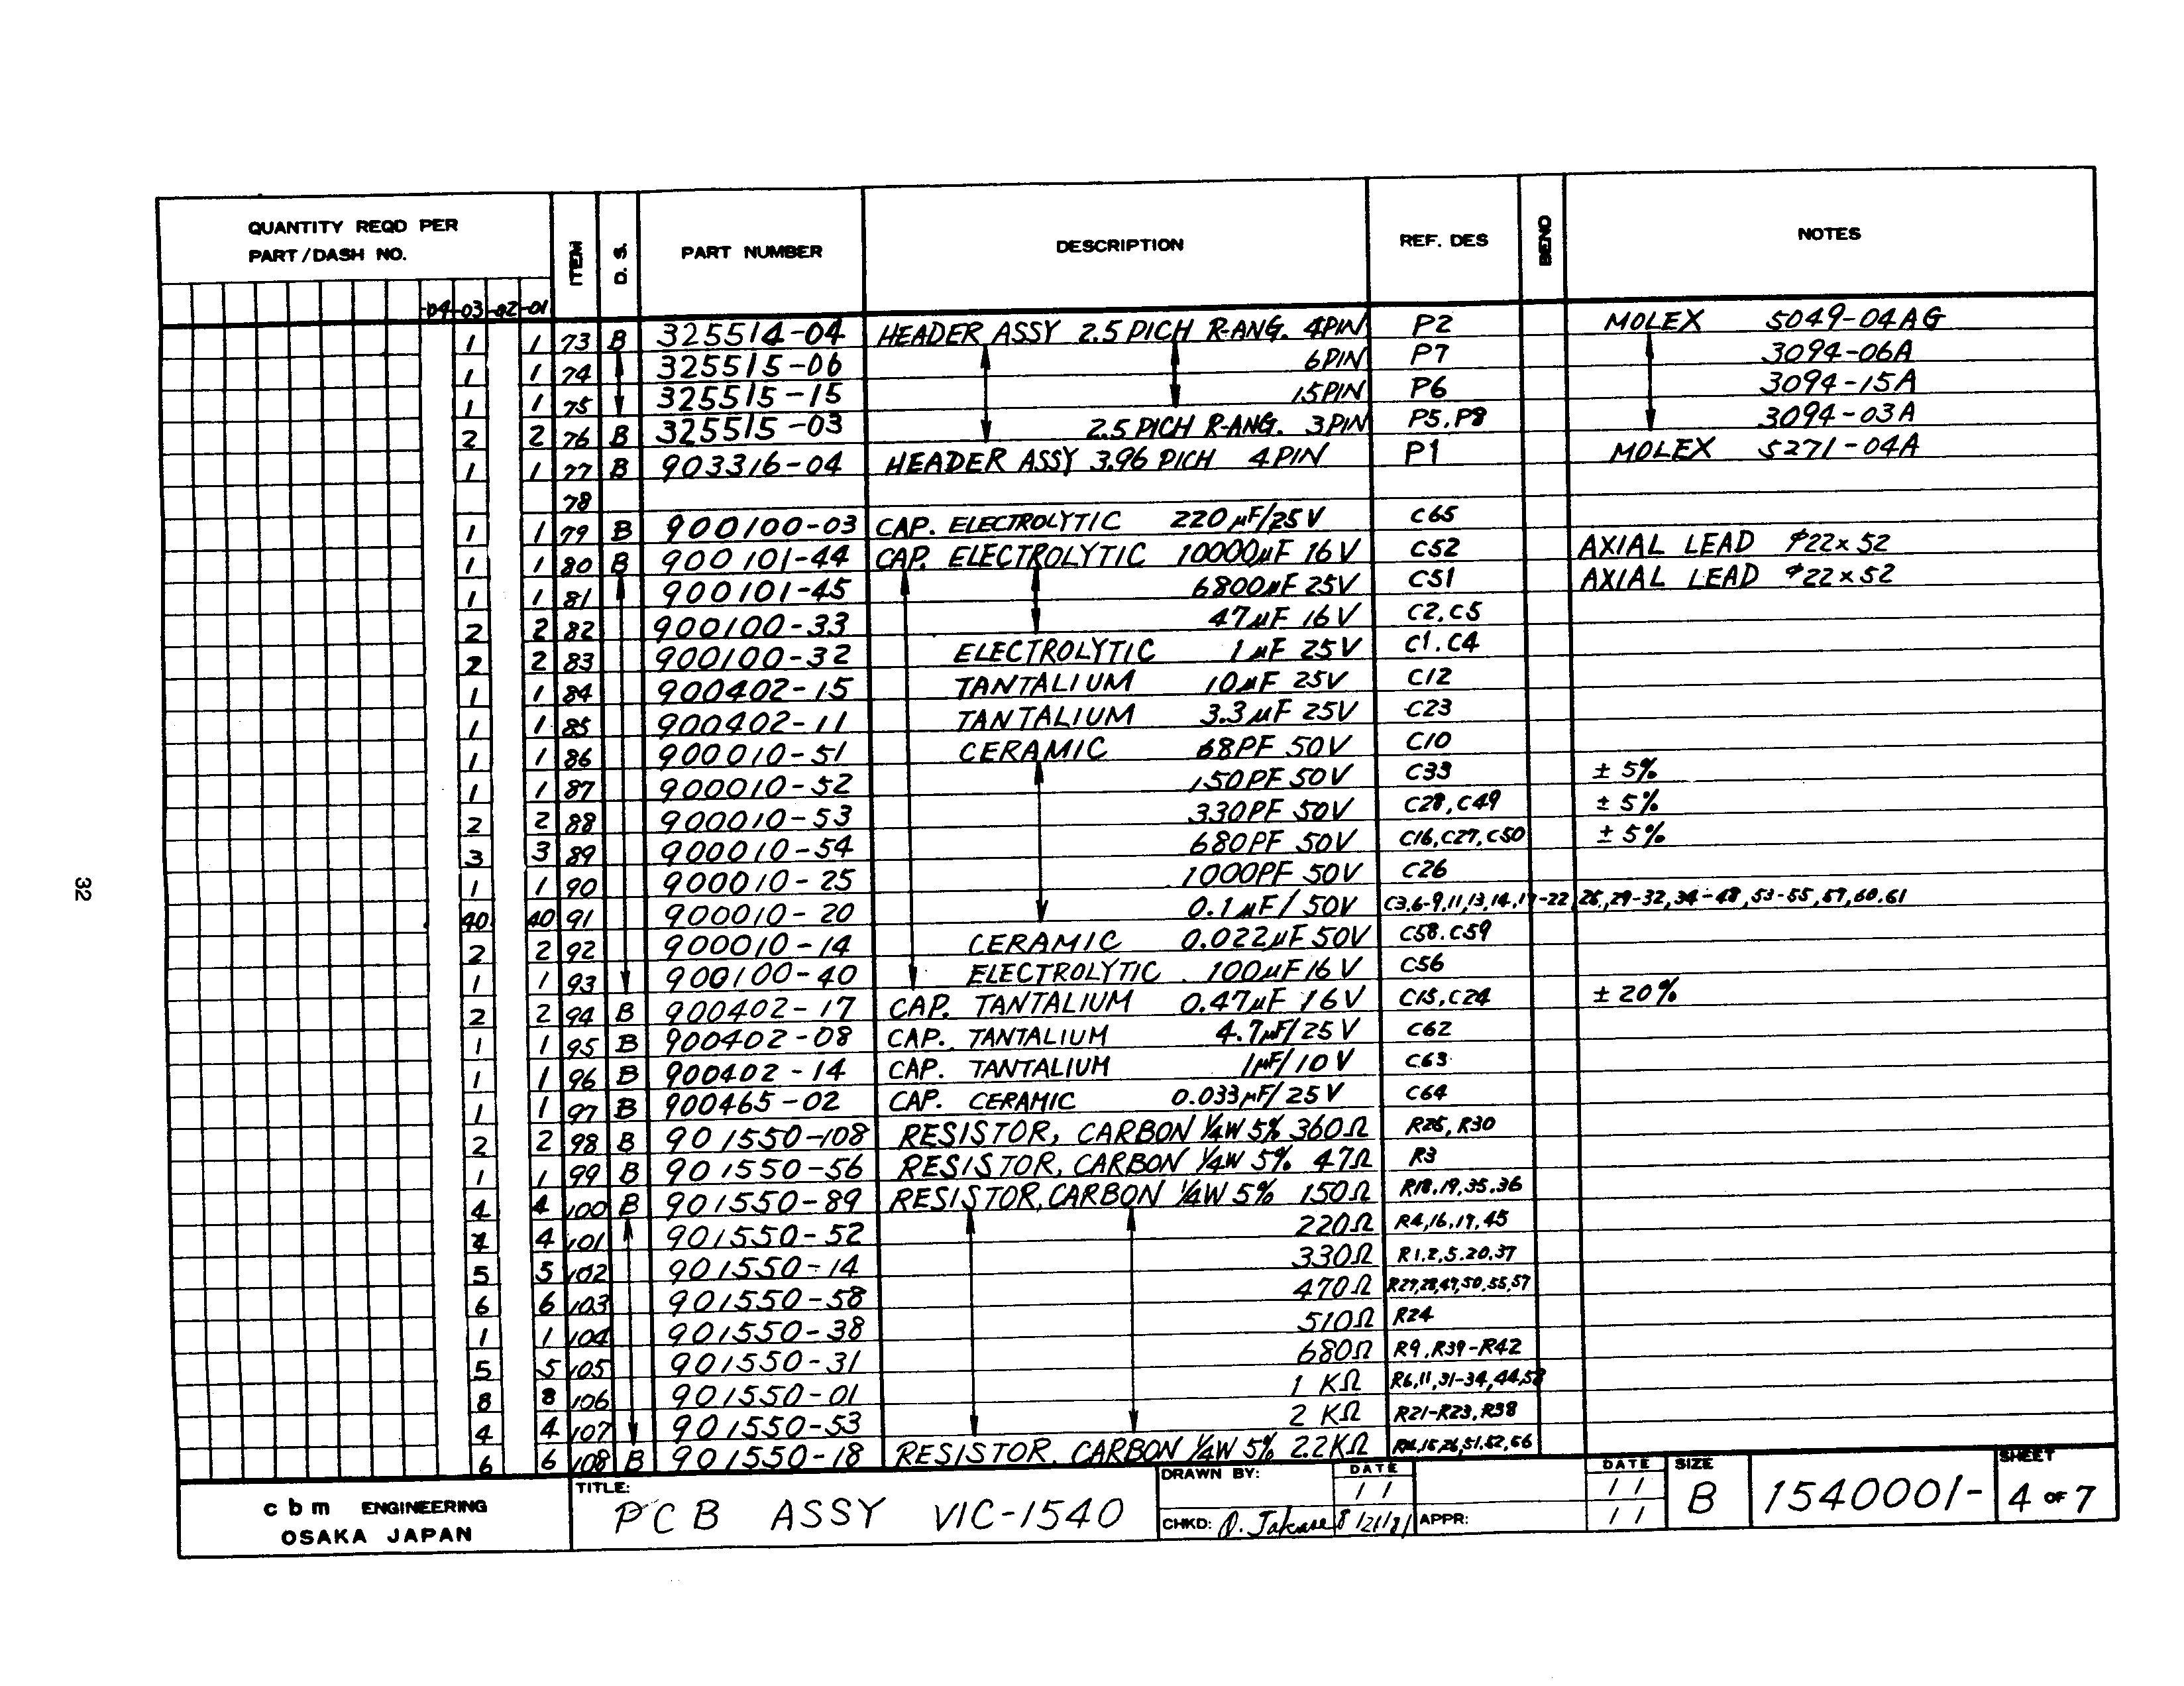 QUANTITY REQD PER
PART/DASH NO.
ITEM D. S. PART NUMBER DESCRIPTION REF. DES BEND NOTES
-04 -03 -02 -01
1 1 73 B 325514-04 HEADER ASSY 2.5 PICH R-ANG. 4PIN P2 MOLEX 5049-04AG
1 1 74 325515-06 6PIN P7 3094-06A
1 1 75 325515-15 15PIN P6 3094-15A
2 2 76 B 325515-03 2.5 PICH R-ANG. 3PIN P5.P8 3094-03A
1 1 77 B 903316-04 HEADER ASSY 3.96 PICH 4PIN P1 MOLEX 5271-04A
78
1 1 79 B 900100-03 CAP. ELECTROLYTIC 220µF/25V C65
1 1 80 B 900101-44 CAP. ELECTROLYTIC 10000µF 16V C52 AXIAL LEAD φ22×52
1 1 81 900101-45 6800µF 25V C51 AXIAL LEAD φ22×52
2 2 82 900100-33 47µF 16V C2.C5
2 2 83 900100-32 ELECTROLYTIC 1µF 25V C1.C4
1 1 84 900402-15 TANTALIUM 10µF 25V C12
1 1 85 900402-11 TANTALIUM 3.3µF 25V C23
1 1 86 900010-51 CERAMIC 68PF 50V C10
1 1 87 900010-52 150PF 50V C33 ± 5%
2 2 88 900010-53 330PF 50V C28,C49 ± 5%
3 3 89 900010-54 680PF 50V C16,C27,C50 ± 5%
1 1 90 900010-25 1000PF 50V C26
40 40 91 900010-20 0.1µF/50V C3,6-9,11,13,14,17-22,25,29-32,34-48,53-55,57,60.61
2 2 92 900010-14 CERAMIC 0.022µF 50V C58.C59
1 1 93 900100-40 ELECTROLYTIC 100µF 16V C56
2 2 94 B 900402-17 CAP. TANTALIUM 0.47µF 16V C15,C24 ± 20%
1 1 95 B 900402-08 CAP. TANTALIUM 4.7µF/25V C62
1 1 96 B 900402-14 CAP. TANTALIUM 1µF/10V C63
1 1 97 B 900465-02 CAP. CERAMIC 0.033µF/25V C64
2 2 98 B 901550-108 RESISTOR, CARBON 1/4W 5% 360Ω R25,R30
1 1 99 B 901550-56 RESISTOR, CARBON 1/4W 5% 47Ω R3
4 4 100 B 901550-89 RESISTOR, CARBON 1/4W 5% 150Ω R18.19.35.36
4 4 101 901550-52 220Ω R4,16,17,45
5 5 102 901550-14 330Ω R1.2,5.20,37
6 6 103 901550-58 470Ω R27,28,47,50,55,57
1 1 104 901550-38 510Ω R24
5 5 105 901550-31 680Ω R9,R39-R42
8 8 106 901550-01 1 KΩ R6,11,31-34,44,58
4 4 107 901550-53 2 KΩ R21-R23,R38
6 6 108 B 901550-18 RESISTOR. CARBON 1/4W 5% 2.2KΩ
cbm ENGINEERING
OSAKA JAPAN
TITLE:
PCB ASSY VIC-1540
DRAWN BY: DATE
/ /
CHKD: 8/21/81
APPR:
DATE
/ /
/ /
SIZE
B
1540001-
SHEET
4 OF 7
32